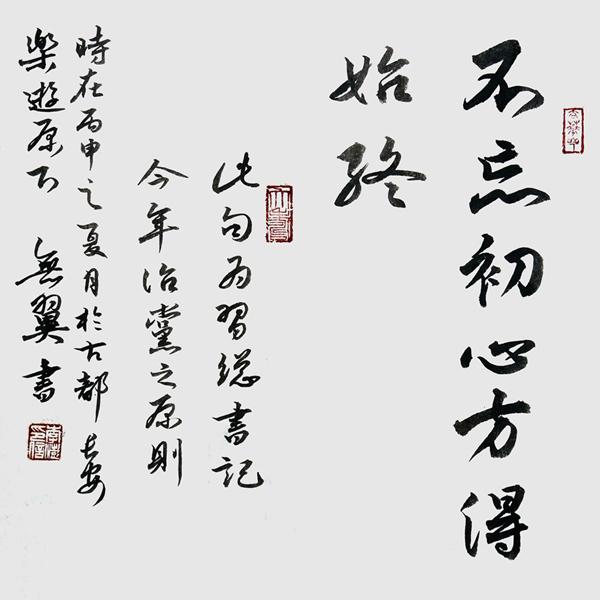 不忘初心方得
始終
此句為習總書記
今年治黨之原則
時在丙申之夏月於古都長安
樂遊原下 無翼書